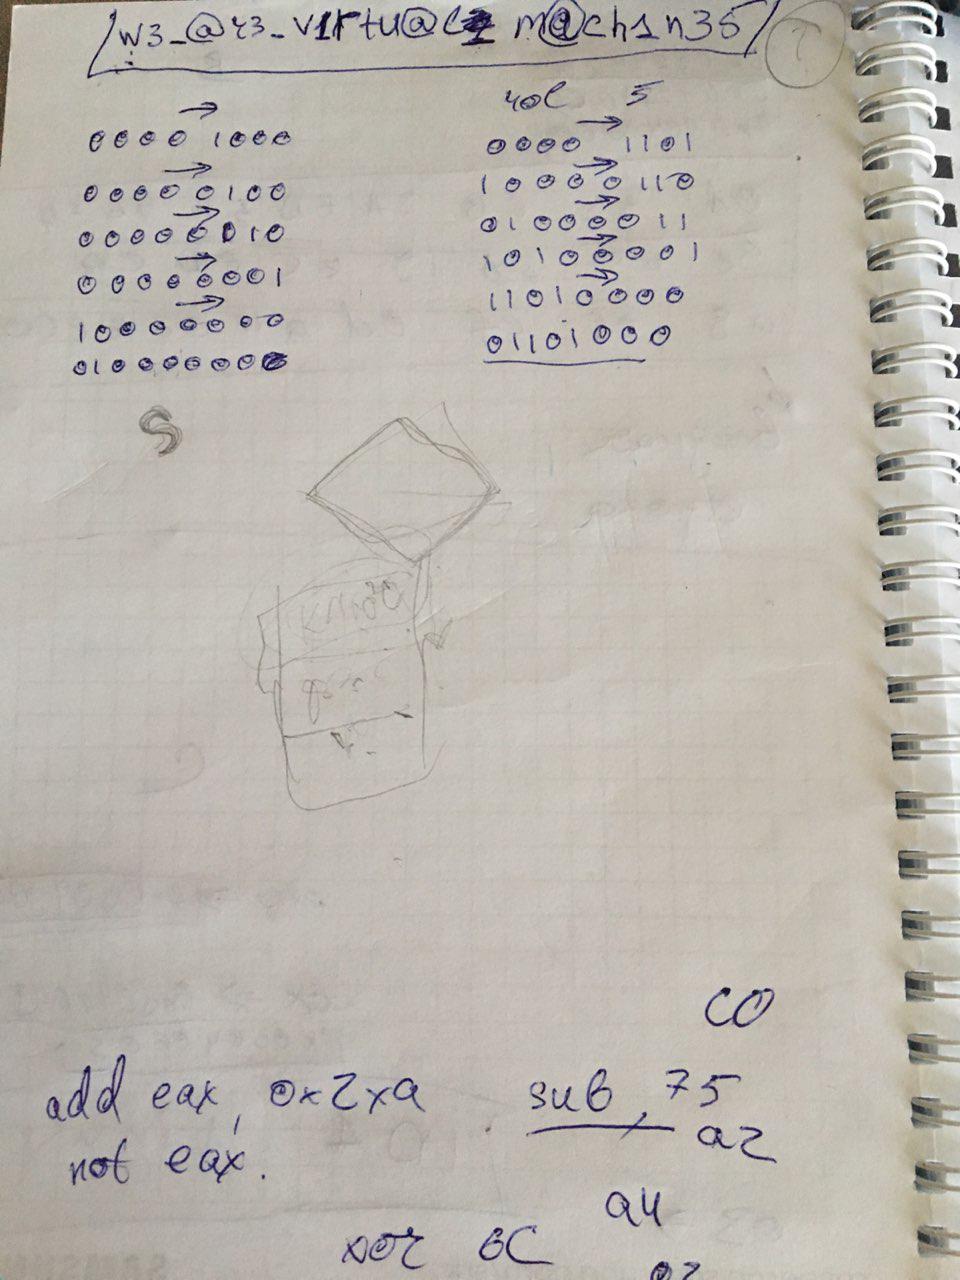 w3_@r3_v1rtu@l m@ch1n35
rol 5
0000 1000
00000100
00000010
00000001
10000000
01000000
0000 1101
10000110
01000011
10100001
11010000
01101000
S
C0
add eax, 0x2xa
not eax.
sub, 75
a2
a4
xor 6C